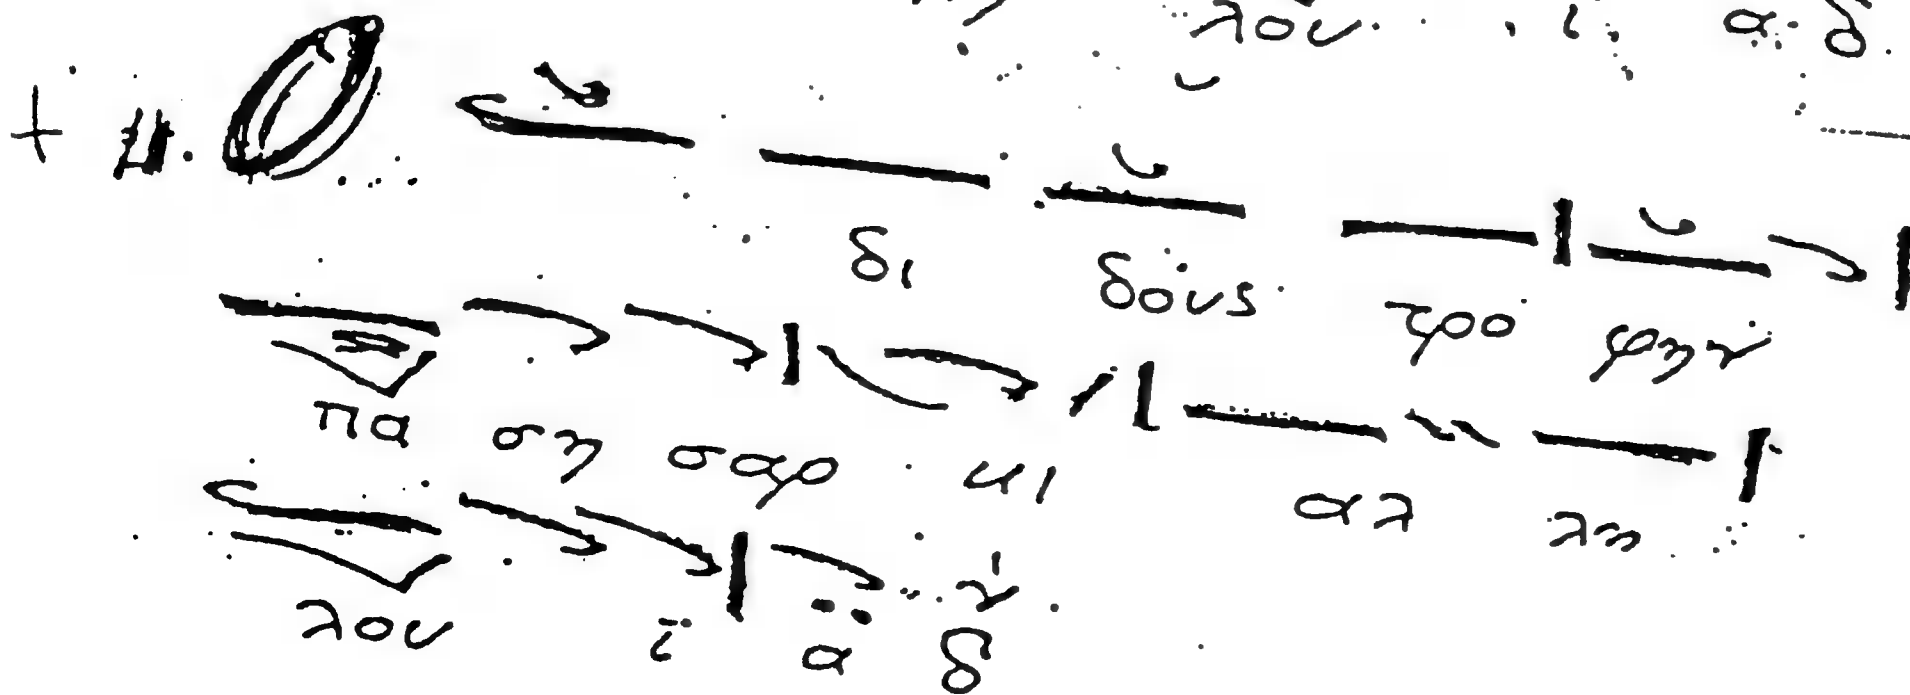 λου ϊ α δ
+ κ. Ο δι δους τρο φην
πα ση σαρ κι αλ λη
λου ϊ α δ